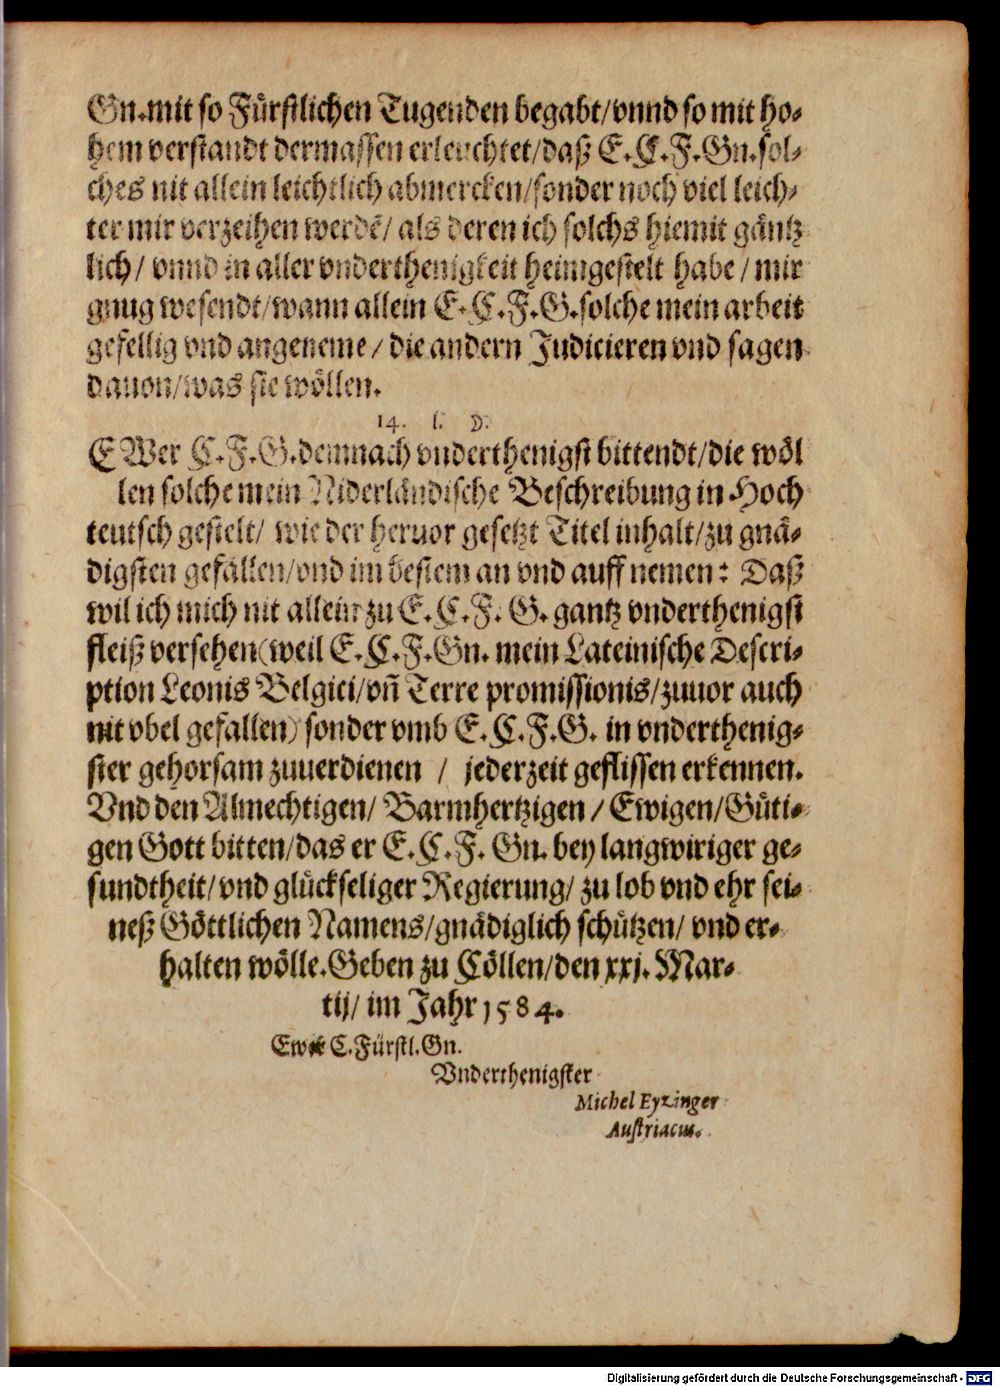 Gn. mit so Fürstlichen Tugenden begabt/ vnnd so mit ho-
hem verstandt dermassen erleuchtet/ daß E. C. F. Gn. sol-
ches nit allein leichtlich abmercken/ sonder noch viel leich-
ter mir verzeihen werdẽ/ als deren ich solchs hiemit gäntz
lich/ vnnd in aller vnderthenigkeit heimgestelt habe/ mir
gnug wesendt/ wann allein E. C. F. G. solche mein arbeit
gefellig vnd angeneme/ die andern Judicieren vnd sagen
dauon/ was sie wöllen.
14. l. D.
EWer C. F. G. demnach vnderthenigst bittendt/ die wöl
len solche mein Niderländische Beschreibung in Hoch
teutsch gestelt/ wie der heruor gesetzt Titel inhalt/ zu gnä-
digsten gefallen/ vnd im bestem an vnd auff nemen: Daß
wil ich mich nit allein zu E. C. F. G. gantz vnderthenigst
fleiß versehen (weil E. C. F. Gn. mein Lateinische Descri-
ption Leonis Belgici/ vñ Terre promissionis/ zuuor auch
nit vbel gefallen) sonder vmb E. C. F. G. in vnderthenig-
ster gehorsam zuuerdienen / jederzeit geflissen erkennen.
Vnd den Almechtigen/ Barmhertzigen/ Ewigen/ Güti-
gen Gott bitten/ das er E. C. F. Gn. bey langwiriger ge-
sundtheit/ vnd glückseliger Regierung/ zu lob vnd ehr sei-
neß Göttlichen Namens/ gnädiglich schützen/ vnd er-
halten wölle. Geben zu Cöllen/ den xxj. Mar-
tij/ im Jahr 1584.
Ewre C. Fürstl. Gn.
Vnderthenigster
Michel Eyzinger
Austriacus.
Digitalisierung gefördert durch die Deutsche Forschungsgemeinschaft - DFG